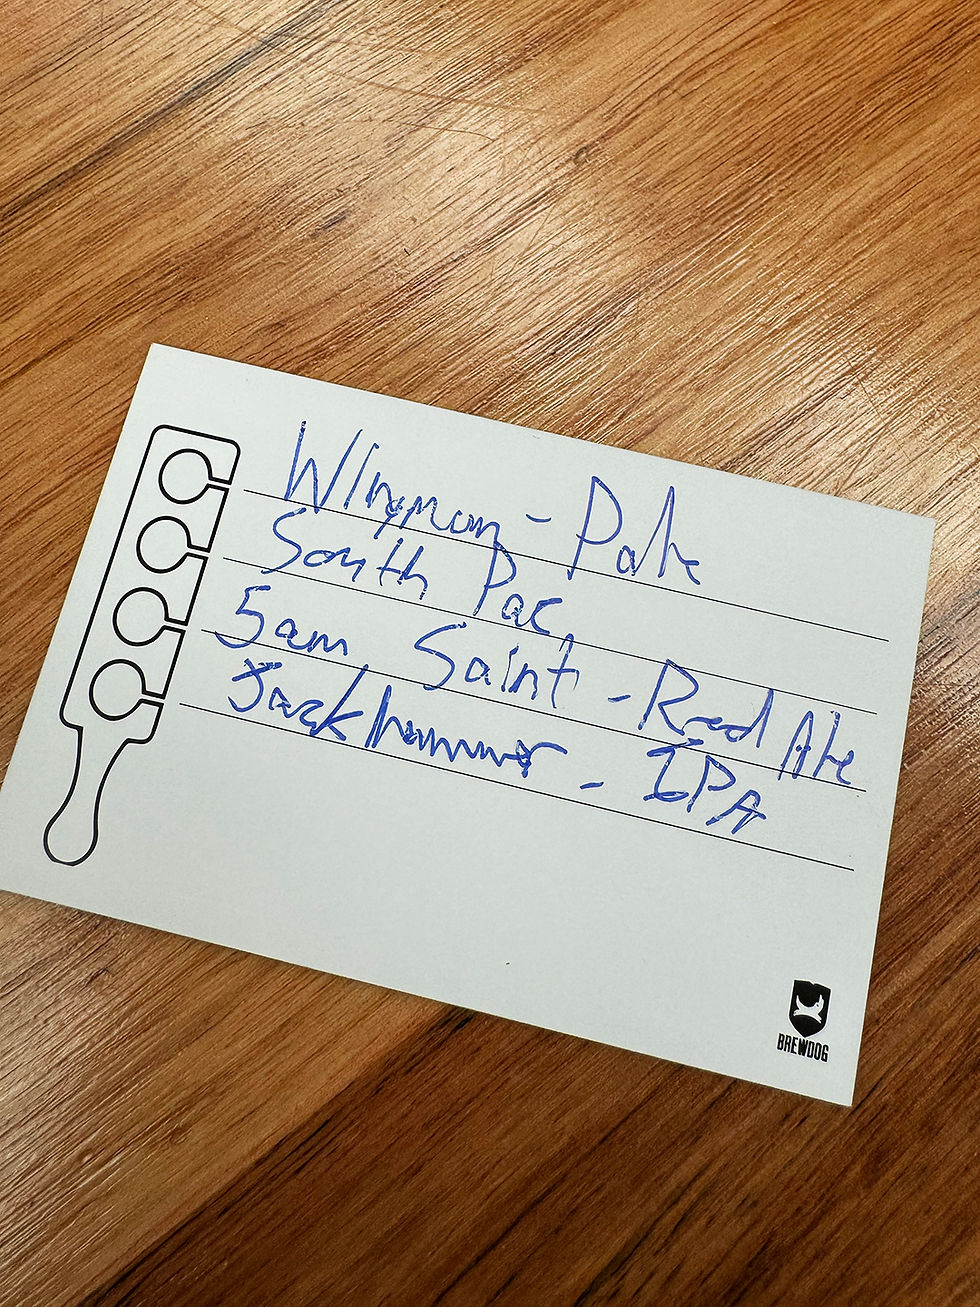 Wingman - Pale
South Pac,
5am Saint - Red Ale
Jackhammer - IPA
BREWDOG